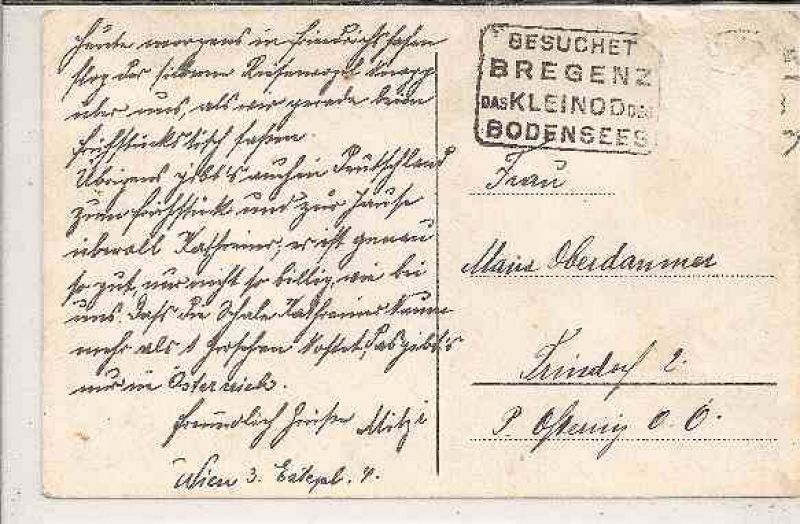 Heute morgens in Friedrichshafen
flog der silberne Riesenvogel knapp
über uns, als wir gerade beim
Frühstückstisch saßen.
Übrigens gibt's auch in Deutschland
zum Frühstück und zur Jause
überall Kathreiner, er ist genau
so gut, nur nicht so billig, wie bei
uns. Daß die Schale Kathreiner kaum
mehr als 1 Groschen kostet, das gibt's
nur in Österreich.
Freundlich Grüße Mitzi
Wien 3. Estepl. 4.
BESUCHET
BREGENZ
DAS KLEINOD DES
BODENSEES
Frau
Marie Oberdammer
2.
P. O. Ö.